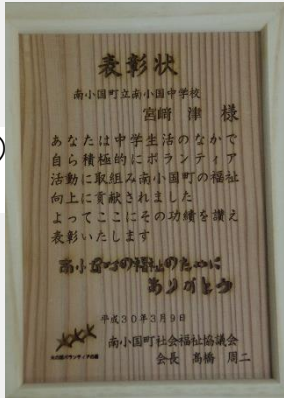 表彰状
南小国町立南小国中学校
宮﨑 津 様
あなたは中学生活のなかで
自ら積極的にボランティア
活動に取組み南小国町の福祉
向上に貢献されました
よってここにその功績を讃え
表彰いたします
南小国町の福祉のために
ありがとう
平成30年3月9日
南小国町社会福祉協議会
会長 髙橋 周二